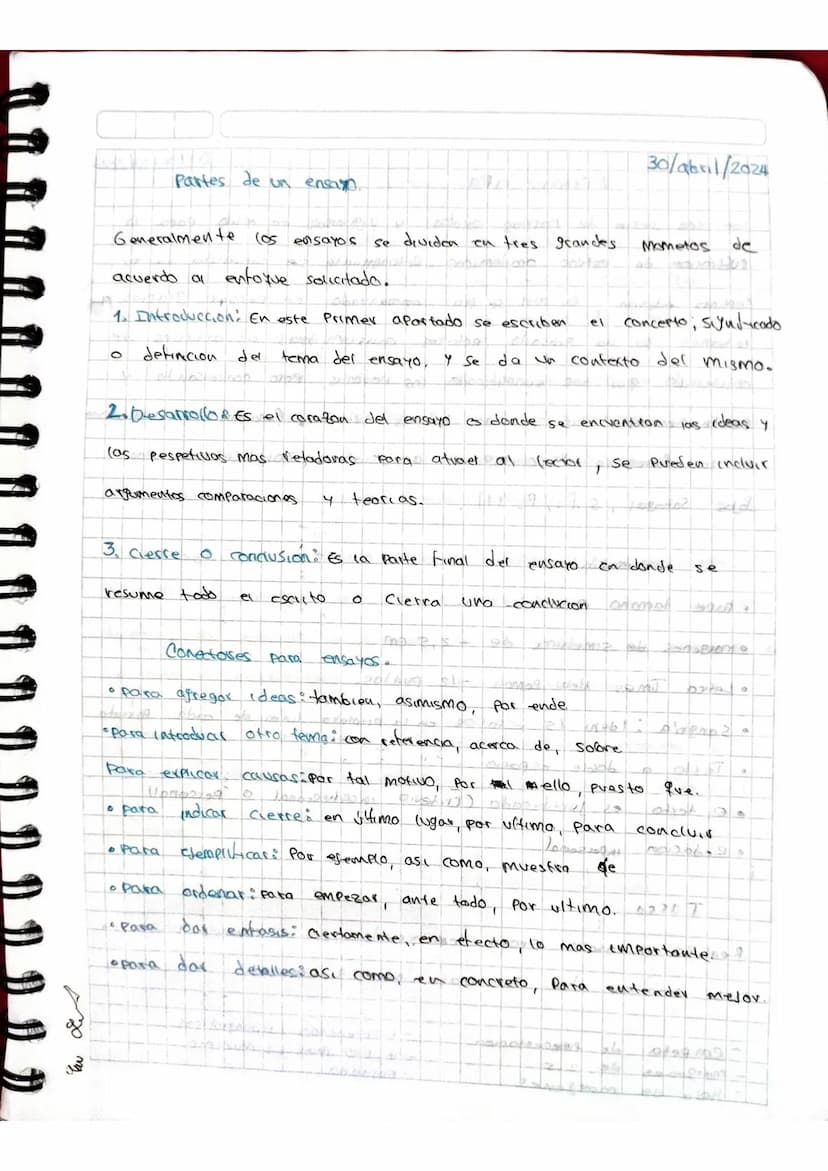 30/abril/2024
Partes de un ensayo.
Generalmente los ensayos se dividen en tres grandes mometos de
acuerdo al enfoque solicitado.
1. Introduccion: En este Primer apartado se escriben el concepto, significado
o defincion del tema del ensayo, y se da un contexto del mismo.
2. Desarrollo: Es el corazon del ensayo es donde se encuentran las ideas y
las pespetivas mas reladoras para atraer al lector, se pueden incluir
argumentos comparaciones y teorias.
3. cierre o conclusión: Es la parte final del ensayo en donde se
resume todo el escrito o cierra una conclucion
Conectores para ensayos.
• para agregar ideas: tambien, asimismo, por ende
• para introducir otro tema: con referencia, acerca de, sobre
Para explicar causas: por tal motivo, por mello, puesto que.
• para indicar cierre: en último lugar, por ultimo, para concluir
• para ejemplificar: Por ejemplo, asi como, muestra de
• para ordenar: para empezar, ante todo, por ultimo.
• para dar enfasis: ciertamente, en efecto, lo mas importante.
• para dar detalles: asi como, en concreto, para entender mejor.